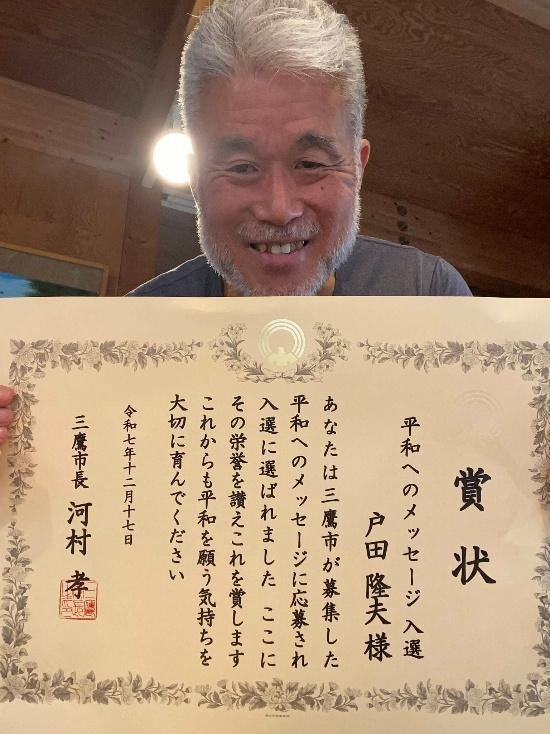 賞状
平和へのメッセージ 入選
戸田 隆夫 様
あなたは三鷹市が募集した
平和へのメッセージに応募され
入選に選ばれました ここに
その栄誉を讃えこれを賞します
これからも平和を願う気持ちを
大切に育んでください
令和七年十二月十七日
三鷹市長 河村 孝